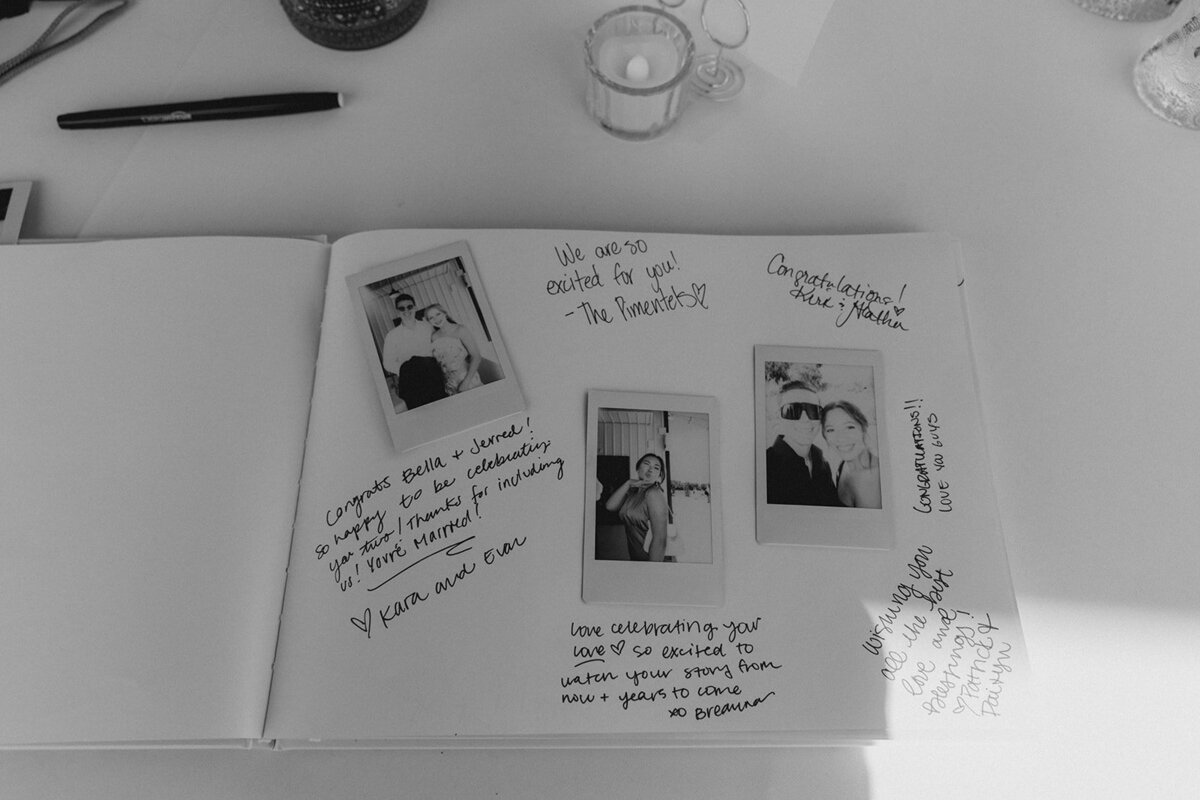 We are so
excited for you!
- The Pimentels♡
Congratulations!
Kirk & Heather
Congrats Bella + Jerred!
so happy to be celebrating
you two! Thanks for including
us! You're Married!
♡ Kara and Evan
love celebrating your
love ♡ so excited to
watch your story from
now + years to come
xo Breanna
CONGRATULATIONS!!
LOVE YOU GUYS
Wishing you
all the best
love and
blessings!
♡ Patrick &